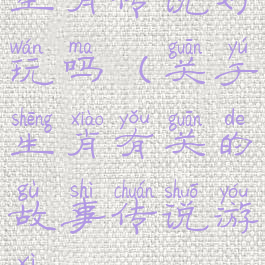 生肖传说好
wán ma guān yú
玩吗(关于
shēng xiào yǒu guān de
生肖有关的
gù shi chuán shuō yóu
故事传说游
xì